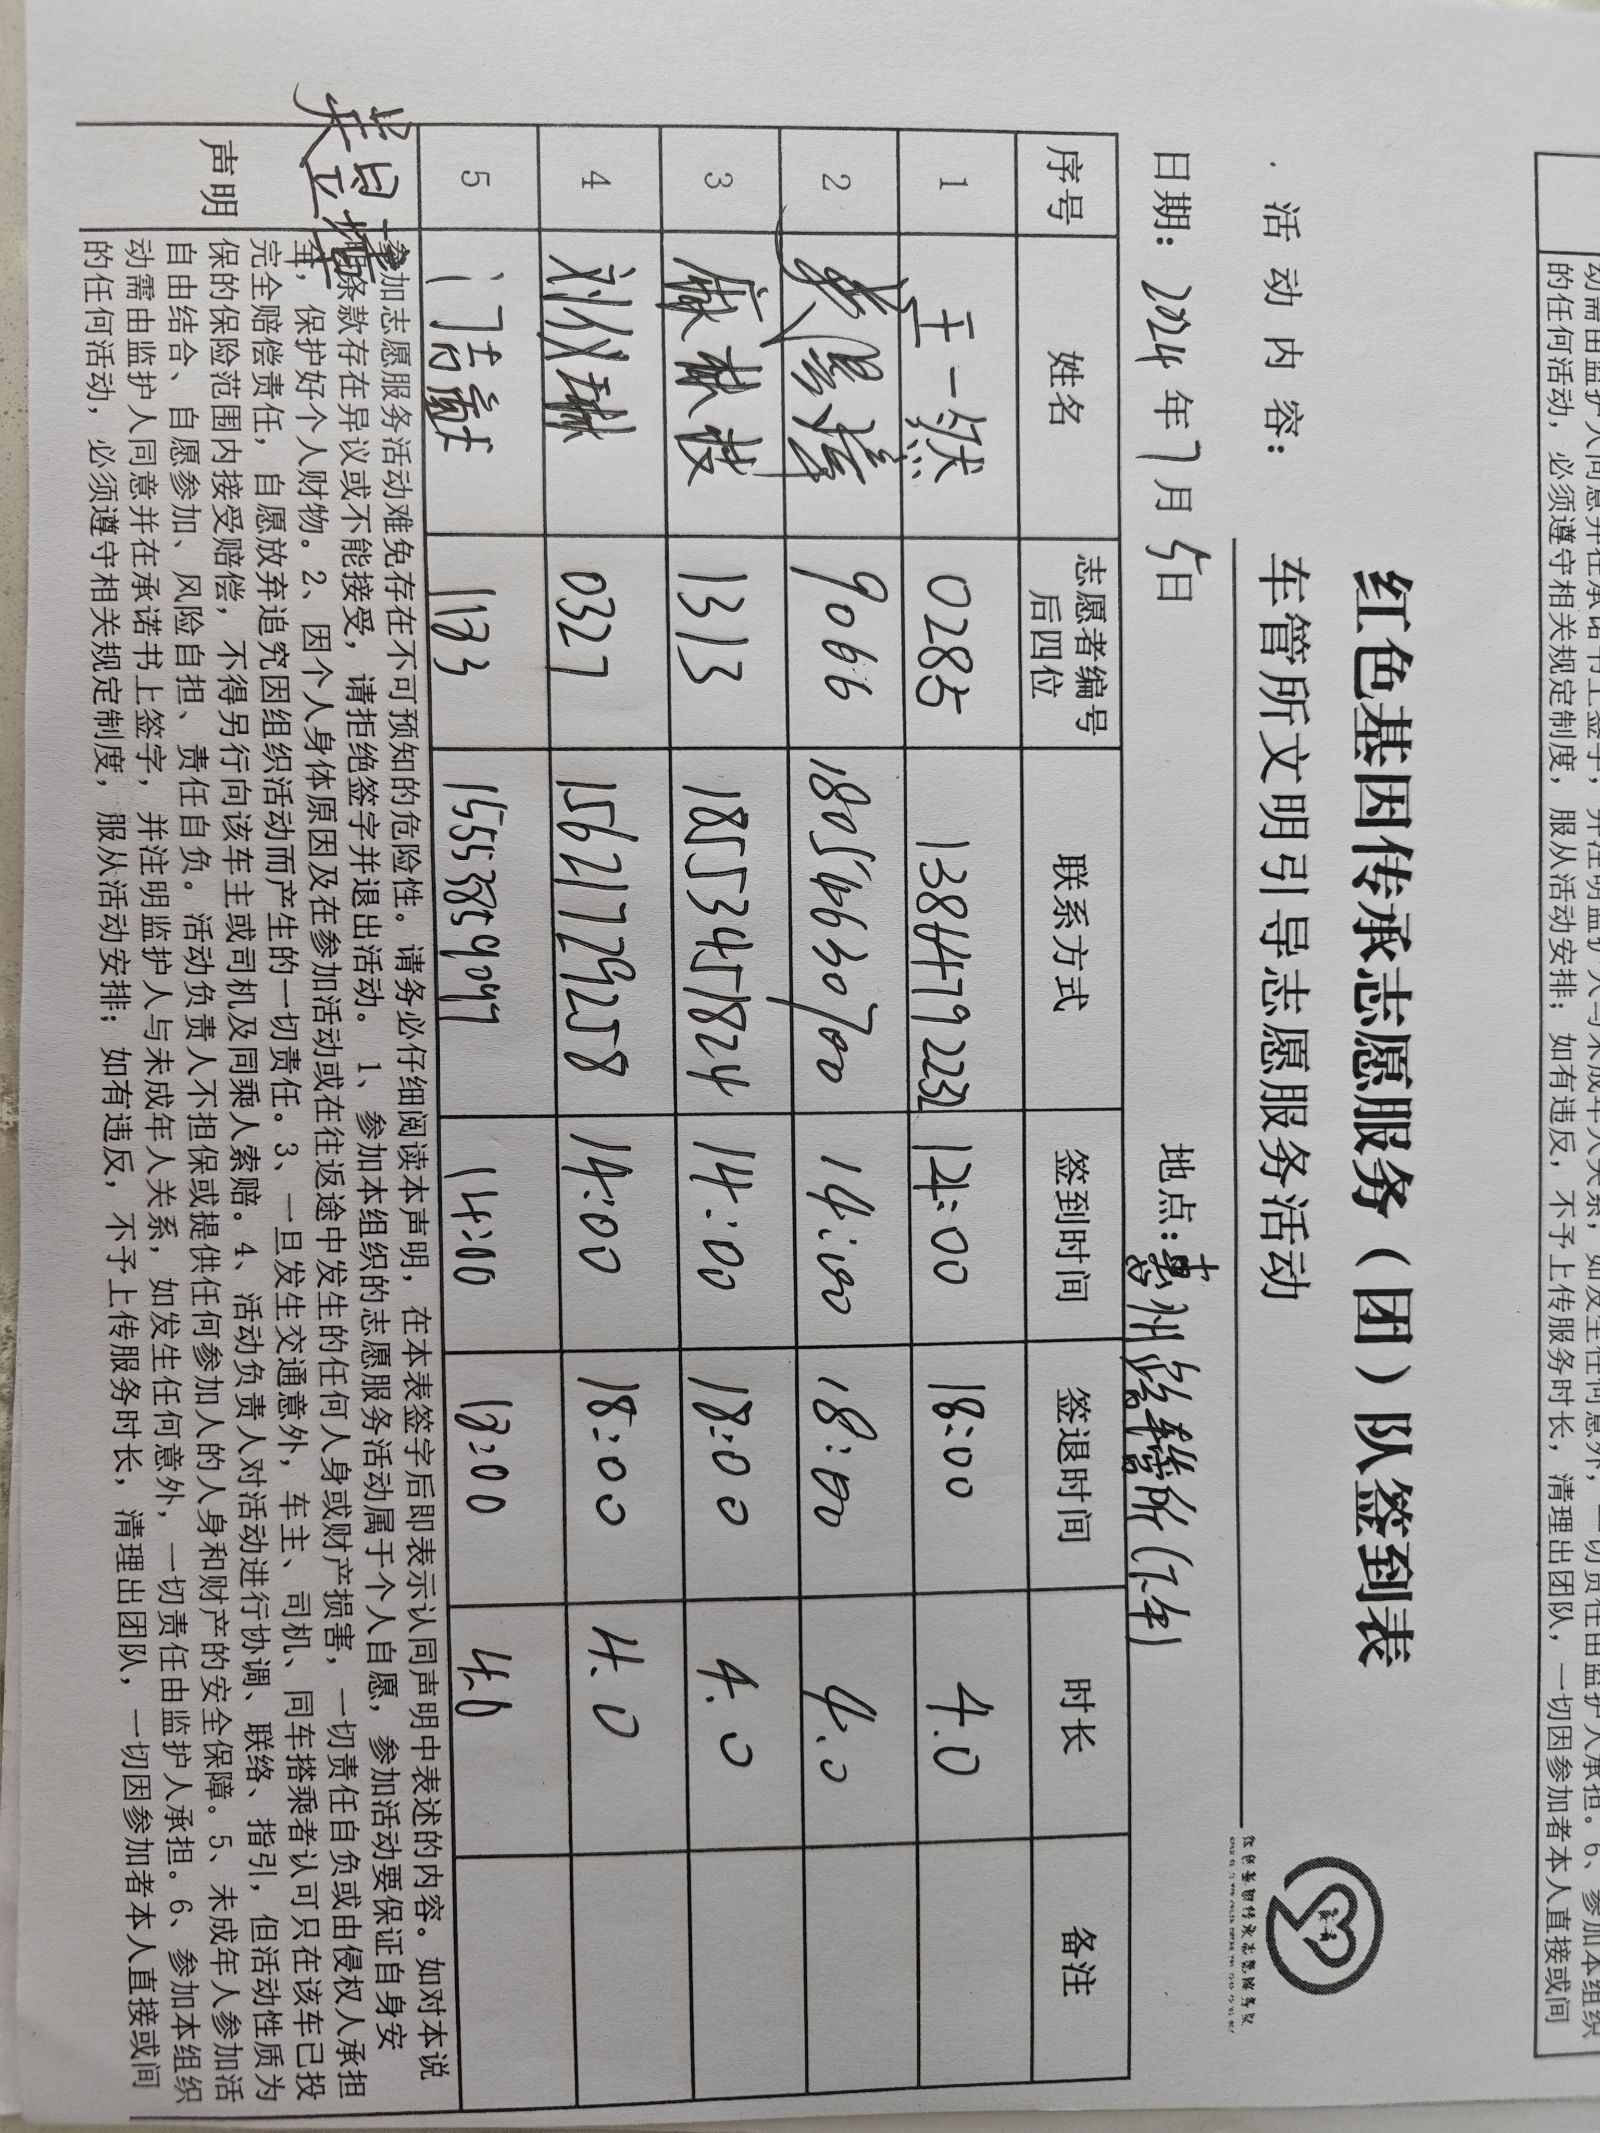 红色基因传承志愿服务（团）队签到表
活动内容：车管所文明引导志愿服务活动
日期：2024年7月5日 地点：惠州
序号 姓名 志愿者编号后四位 联系方式 签到时间 签退时间 时长 备注
1 王一然 0285 13864792232 14:00 18:00 4.0
2 9066 18054630700 14:00 18:00 4.0
3 1313 18553451824 14:00 18:00 4.0
4 刘仪琳 0327 15621729258 14:00 18:00 4.0
5 1133 15553859097 14:00 18:00 4.0
声明
参加志愿服务活动难免存在不可预知的危险性。请务必仔细阅读本声明，在本表签字后即表示认同声明中表述的内容。如对本说
明条款存在异议或不能接受，请拒绝签字并退出活动。1、参加本组织的志愿服务活动属于个人自愿，参加活动要保证自身安
全，保护好个人财物。2、因个人身体原因及在参加活动或在往返途中发生的任何人身或财产损害，一切责任自负或由侵权人承担
完全赔偿责任，自愿放弃追究因组织活动而产生的一切责任。3、一旦发生交通意外，车主、司机、同车搭乘者认可只在该车已投
保的保险范围内接受赔偿，不得另行向该车主或司机及同乘人索赔。4、活动负责人对活动进行协调、联络、指引，但活动性质为
自由结合、自愿参加、风险自担、责任自负。活动负责人不担保或提供任何参加人的人身和财产的安全保障。5、未成年人参加活
动需由监护人同意并在承诺书上签字，并注明监护人与未成年人关系，如发生任何意外，一切责任由监护人承担。6、参加本组织
的任何活动，必须遵守相关规定制度，服从活动安排；如有违反，不予上传服务时长，清理出团队，一切因参加者本人直接或间
动需由监护人同意并在承诺书上签字，并注明监护人与未成年人关系，如发生任何意外，一切责任由监护人承担。6、参加本组织
的任何活动，必须遵守相关规定制度，服从活动安排；如有违反，不予上传服务时长，清理出团队，一切因参加者本人直接或间